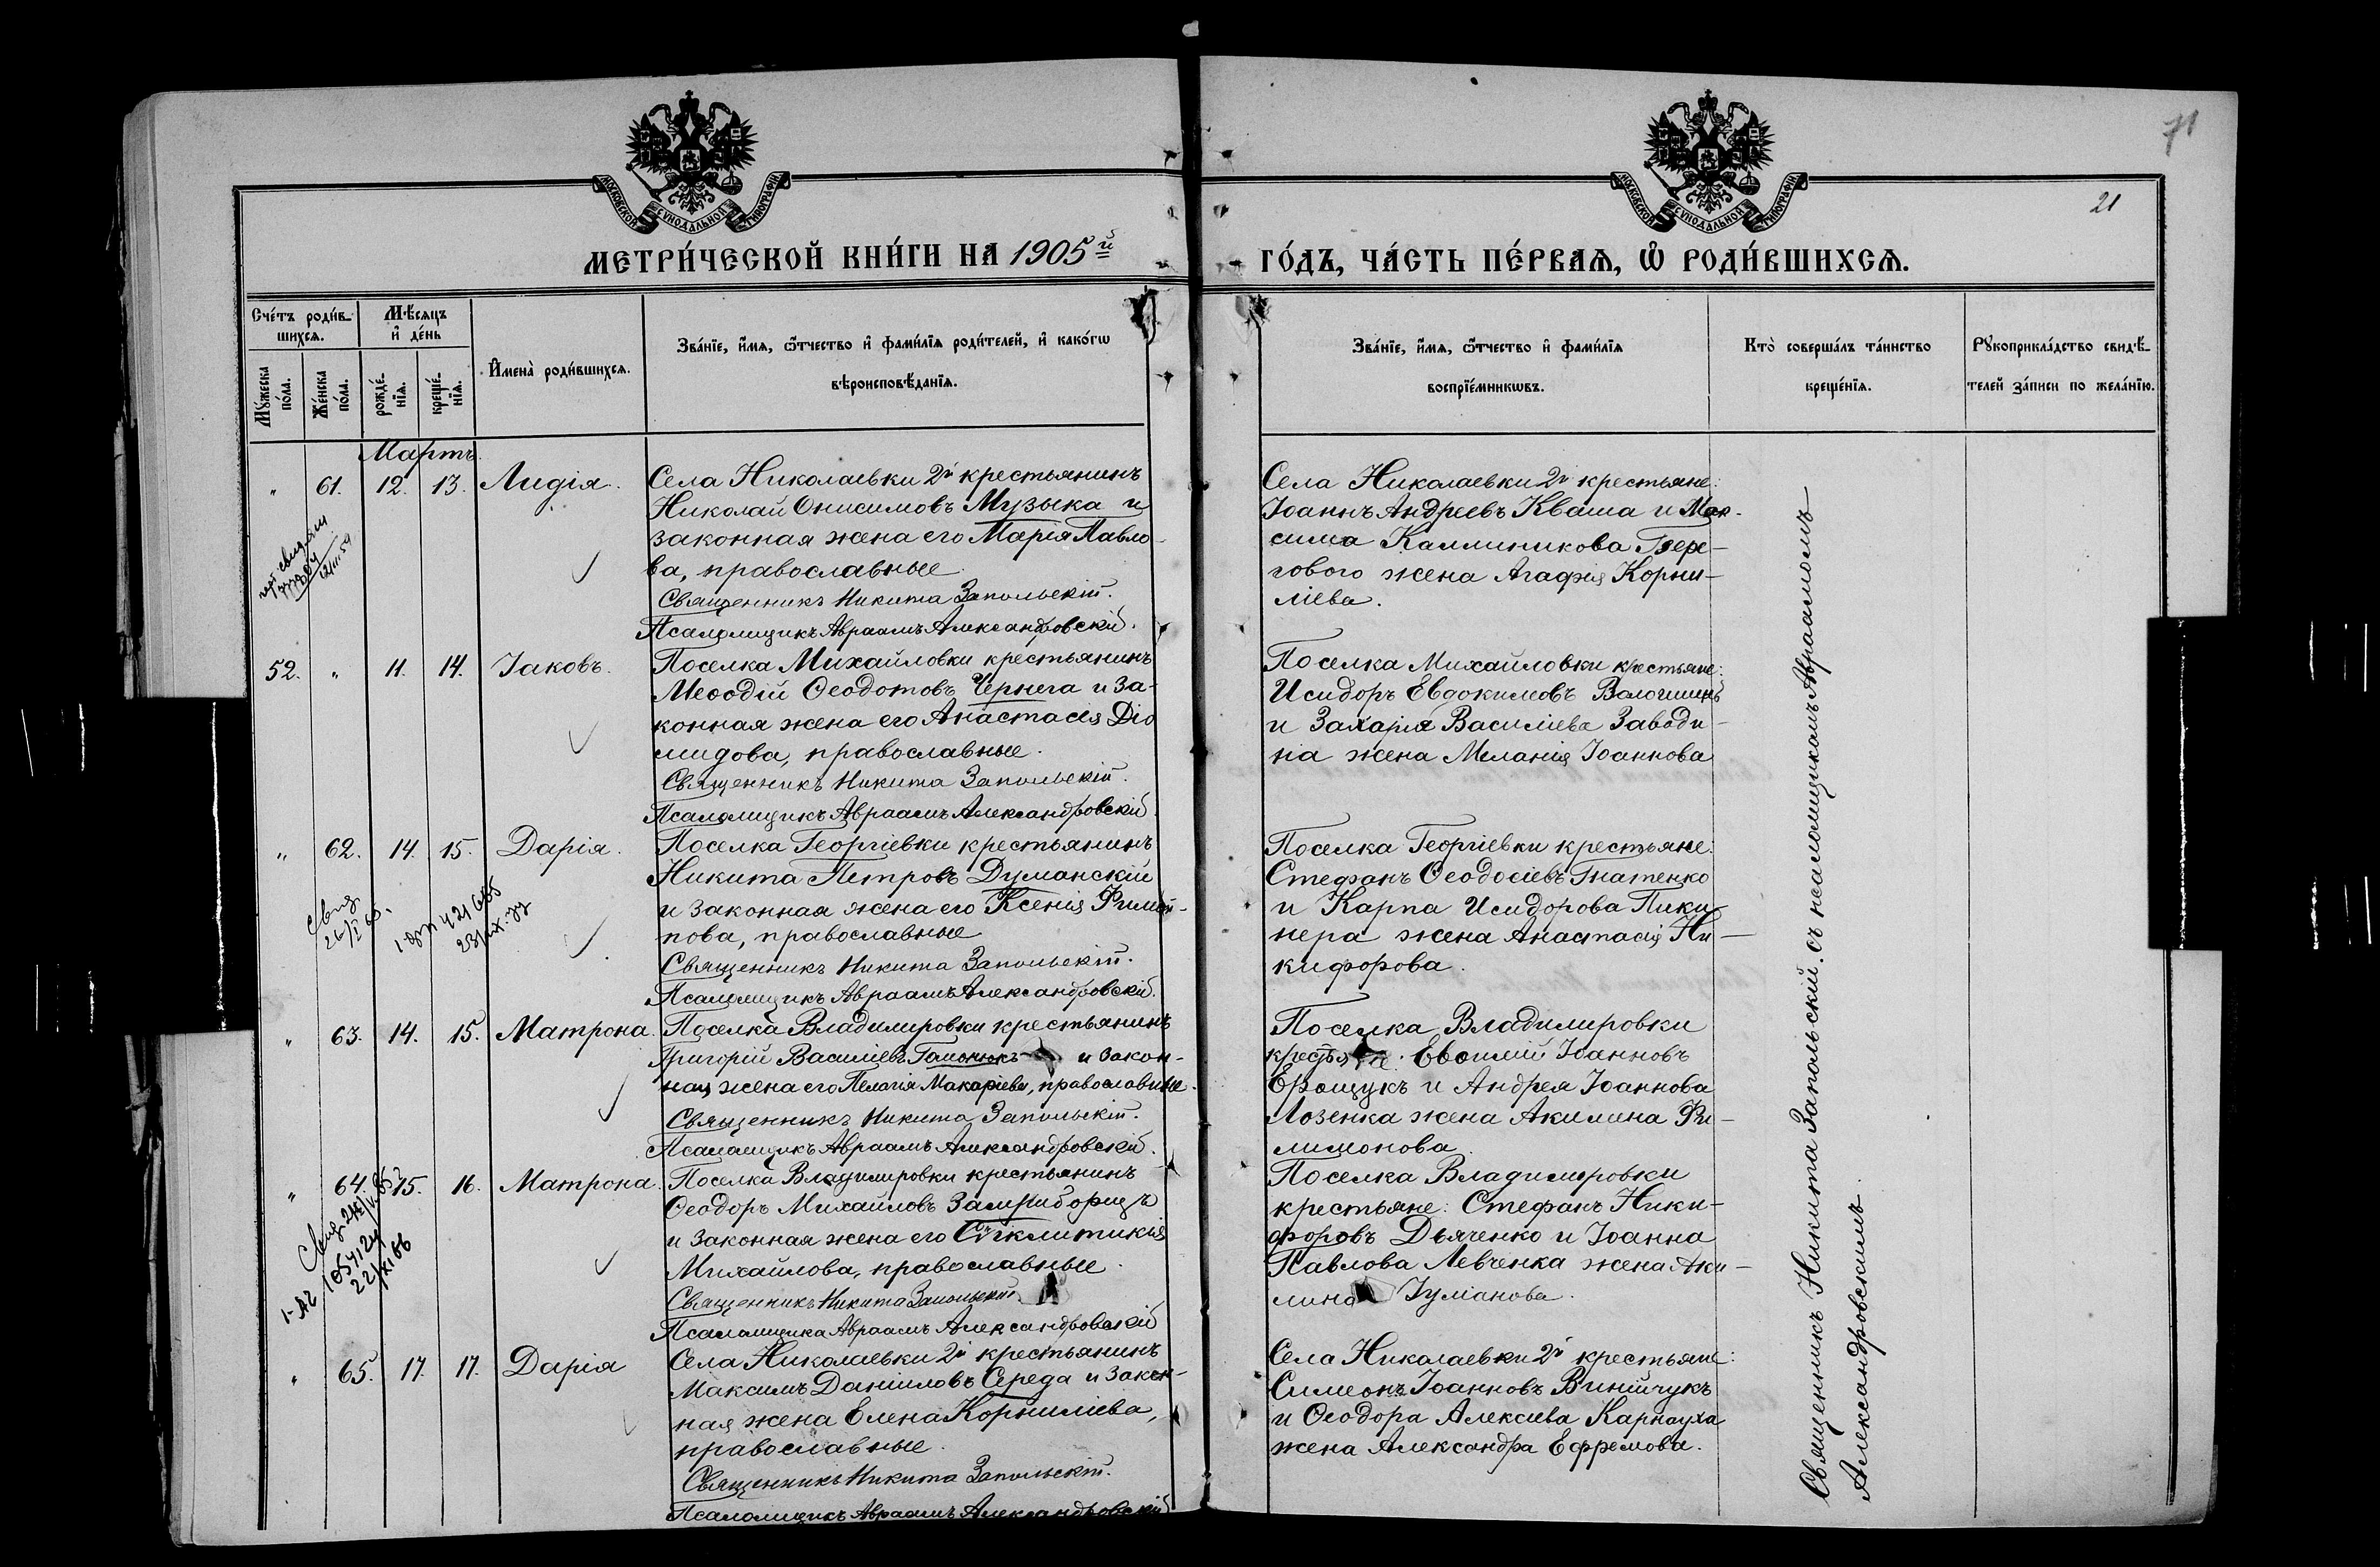 71
21
МОСКОВСКОЙ СѴНОДАЛЬНОЙ ТИПОГРАФІИ
МОСКОВСКОЙ СѴНОДАЛЬНОЙ ТИПОГРАФІИ
МЕТРИ́ЧЕСКОЙ КНИ́ГИ НА 1905й
ГО́ДЪ, ЧА́СТЬ ПЕ́РВАѦ, Ѡ҆ РОДИ́ВШИХСѦ.
Сче́тъ роди́в-
шихсѧ.
Мꙋ́жеска по́ла.
Же́нска по́ла.
Мѣ́сяцъ
и҆ де́нь
рожде́-
нїѧ.
креще́-
нїѧ.
И҆мена̀ роди́вшихсѧ.
Зва́нїе, и҆́мѧ, ѻ҆́тчество и҆ фами́лїѧ роди́телей, и҆ како́гѡ
вѣроисповѣ́данїѧ.
Зва́нїе, и҆́мѧ, ѻ҆́тчество и҆ фами́лїѧ
воспрїе́мникѡвъ.
Кто̀ соверша́лъ та́инство
креще́нїѧ.
Рꙋкоприкла́дство свидѣ́-
телей за́писи по жела́нїю.
Мартъ.
" 61. 12. 13. Лидія.
Села Николаевки 2й крестьянинъ
Николай Онисимовъ Музыка и
законная жена его Марія Павло-
ва, православные.
Священникъ Никита Запольскій.
Псаломщикъ Авраамъ Александровскій.
Села Николаевки 2й крестьяне:
Іоаннъ Андреевъ Кваша и Мак-
сима Каллиникова Гзере-
гового жена Агафія Корни-
ліева.
52. " 11. 14. Іаковъ.
Поселка Михайловки крестьянинъ
Меѳодій Ѳеодотовъ Чернега и за-
конная жена его Анастасія Діо
мидова, православные.
Священникъ Никита Запольскій.
Псаломщикъ Авраамъ Александровскій.
Поселка Михайловки крестьяне:
Исидоръ Евдокимовъ Вологшинъ
и Захарія Василіева Заводи-
на жена Меланія Іоаннова
" 62. 14. 15. Дарія.
Свид.
1-фл 421685
23/IX.77
Поселка Георгіевки крестьянинъ
Никита Петровъ Думанскій
и законная жена его Ксенія Филип-
пова, православные
Священникъ Никита Запольскій.
Псаломщикъ Авраамъ Александровскій.
Поселка Георгіевки крестьяне:
Стефанъ Ѳеодосіевъ Гнатенко
и Карпа Исидорова Пики-
нера жена Анастасія Ни-
кифорова.
" 63. 14. 15. Матрона.
Поселка Владимировки крестьянинъ
Григорій Василіевъ Гапонюкъ и закон-
ная жена его Пелагія Макаріева, православные.
Священникъ Никита Запольскій.
Псаломщикъ Авраамъ Александровскій.
Поселка Владимировки
крестьяне: Евѳимій Іоанновъ
Ерощукъ и Андрея Іоаннова
Лозенка жена Акилина Фи-
лимонова.
" 64. 15. 16. Матрона.
22/XI 66
Поселка Владимировки крестьянинъ
Ѳеодоръ Михайловъ Замриборщъ
и законная жена его Сѵгклитикія
Михайлова, православные.
Священникъ Никита Запольскій
Псаломщика Авраамъ Александровскій
Поселка Владимировки
крестьяне: Стефанъ Ники-
форовъ Дьяченко и Іоанна
Павлова Левченка жена Аки-
лина Іуліанова.
" 65. 17. 17. Дарія
Села Николаевки 2й крестьянинъ
Максимъ Даніиловъ Середа и закон-
ная жена Елена Корниліева,
православные.
Священникъ Никита Запольскій.
Псаломщикъ Авраамъ Александровскій
Села Николаевки 2й крестьяне:
Симеонъ Іоанновъ Винійчукъ
и Ѳеодора Алексіева Карнауха
жена Александра Ефремова.
Священникъ Никита Запольскій съ псаломщикомъ Авраамомъ
Александровскимъ.